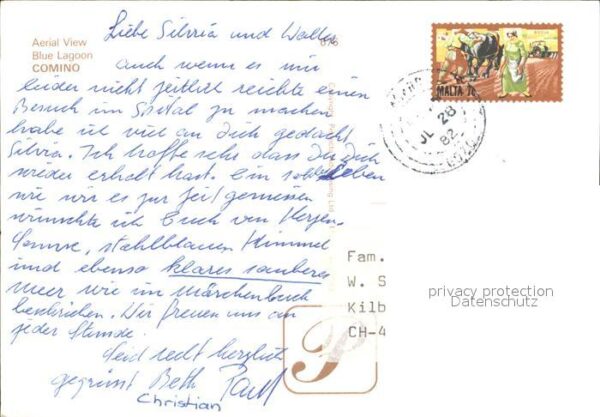 Liebe Silvia und Walter
Aerial View
Blue Lagoon
COMINO
auch wenn es mir
leider nicht zeitlich reichte einen
Besuch im Spital zu machen
habe ich viel an Dich gedacht
Silvia. Ich hoffe sehr dass Du Dich
wieder erholt hast. Ein solches Leben
wie wir es zur Zeit geniessen
wünschte ich Euch von Herzen.
Sonne, stahlblauen Himmel
und ebenso klares sauberes
Meer wie im Märchenbuch
beschrieben. Wir freuen uns an
jeder Stunde.
Seid recht herzlich
gegrüsst Beth Paul
Christian
MALTA 7c
JL 28
82
Fam.
W. S
Kilb
CH-4
privacy protection
Datenschutz
P